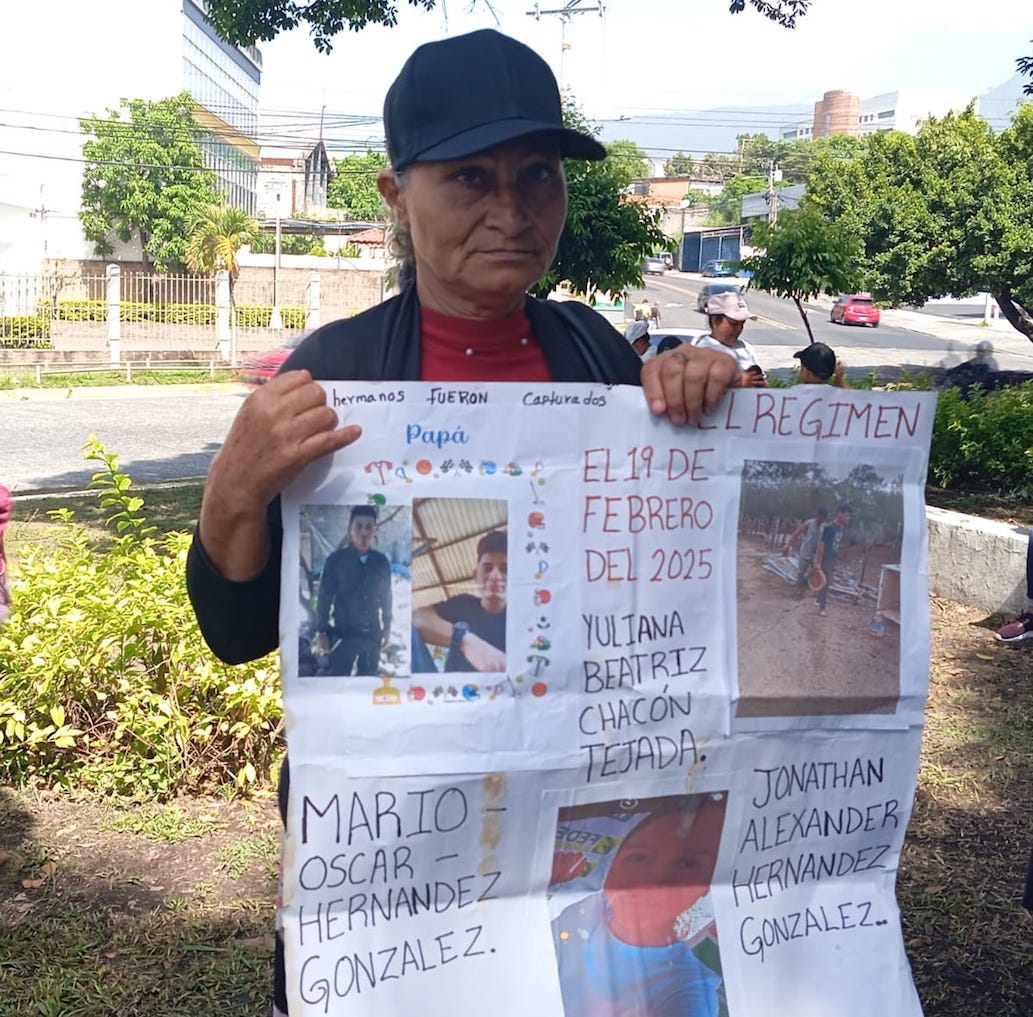 hermanos FUERÓN Capturados
EL REGIMEN
Papá
EL 19 DE
FEBRERO
DEL 2025
YULIANA
BEATRIZ
CHACÓN
TEJADA.
MARIO –
OSCAR –
HERNANDEZ
GONZALEZ.
JONATHAN
ALEXANDER
HERNANDEZ
GONZALEZ..